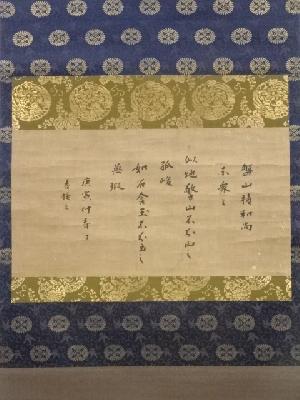 盤山積和尚
示衆云
似地擎山不知山之
孤峻
如石含玉不知玉之
無瑕
庚寅仲春